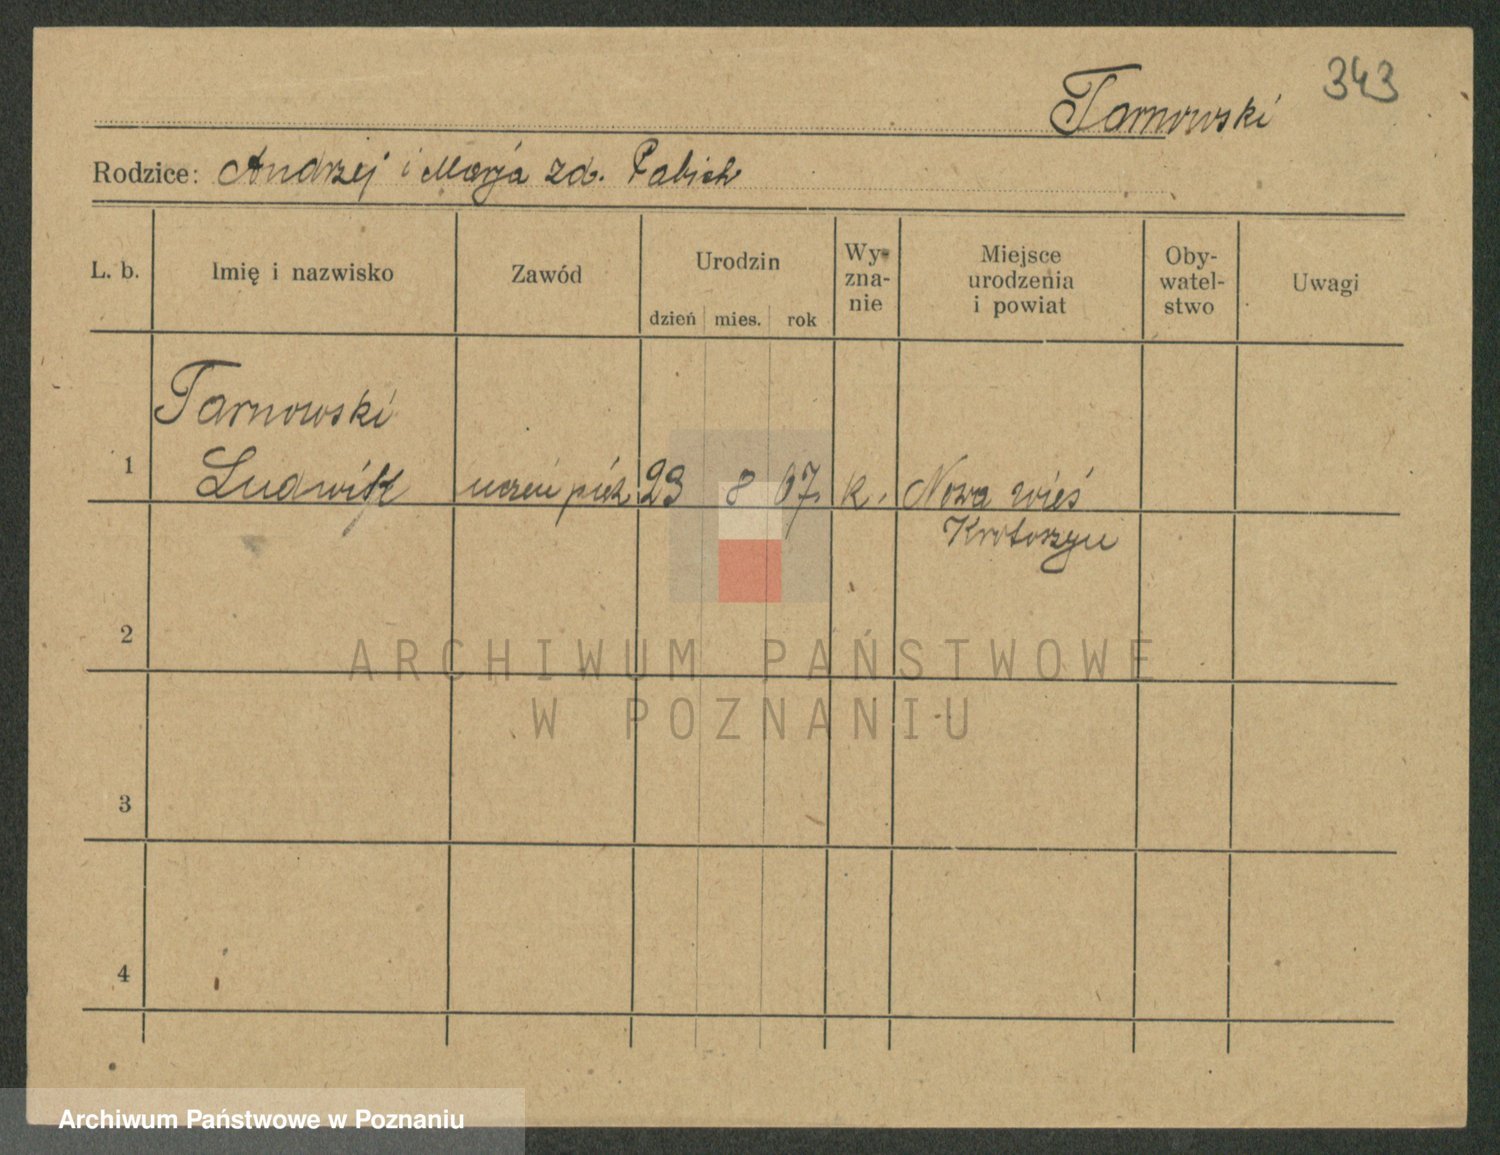 343
Tarnowski
Rodzice: Andrzej i Marja zd. Pabich
L. b.
Imię i nazwisko
Zawód
Urodzin
dzień mies. rok
Wy-
zna-
nie
Miejsce
urodzenia
i powiat
Oby-
watel-
stwo
Uwagi
Tarnowski
1 Ludwik uczeń piek. 23 8 07. k. Nowa wieś
Krotoszyn
2
3
4
ARCHIWUM PAŃSTWOWE
W POZNANIU
Archiwum Państwowe w Poznaniu